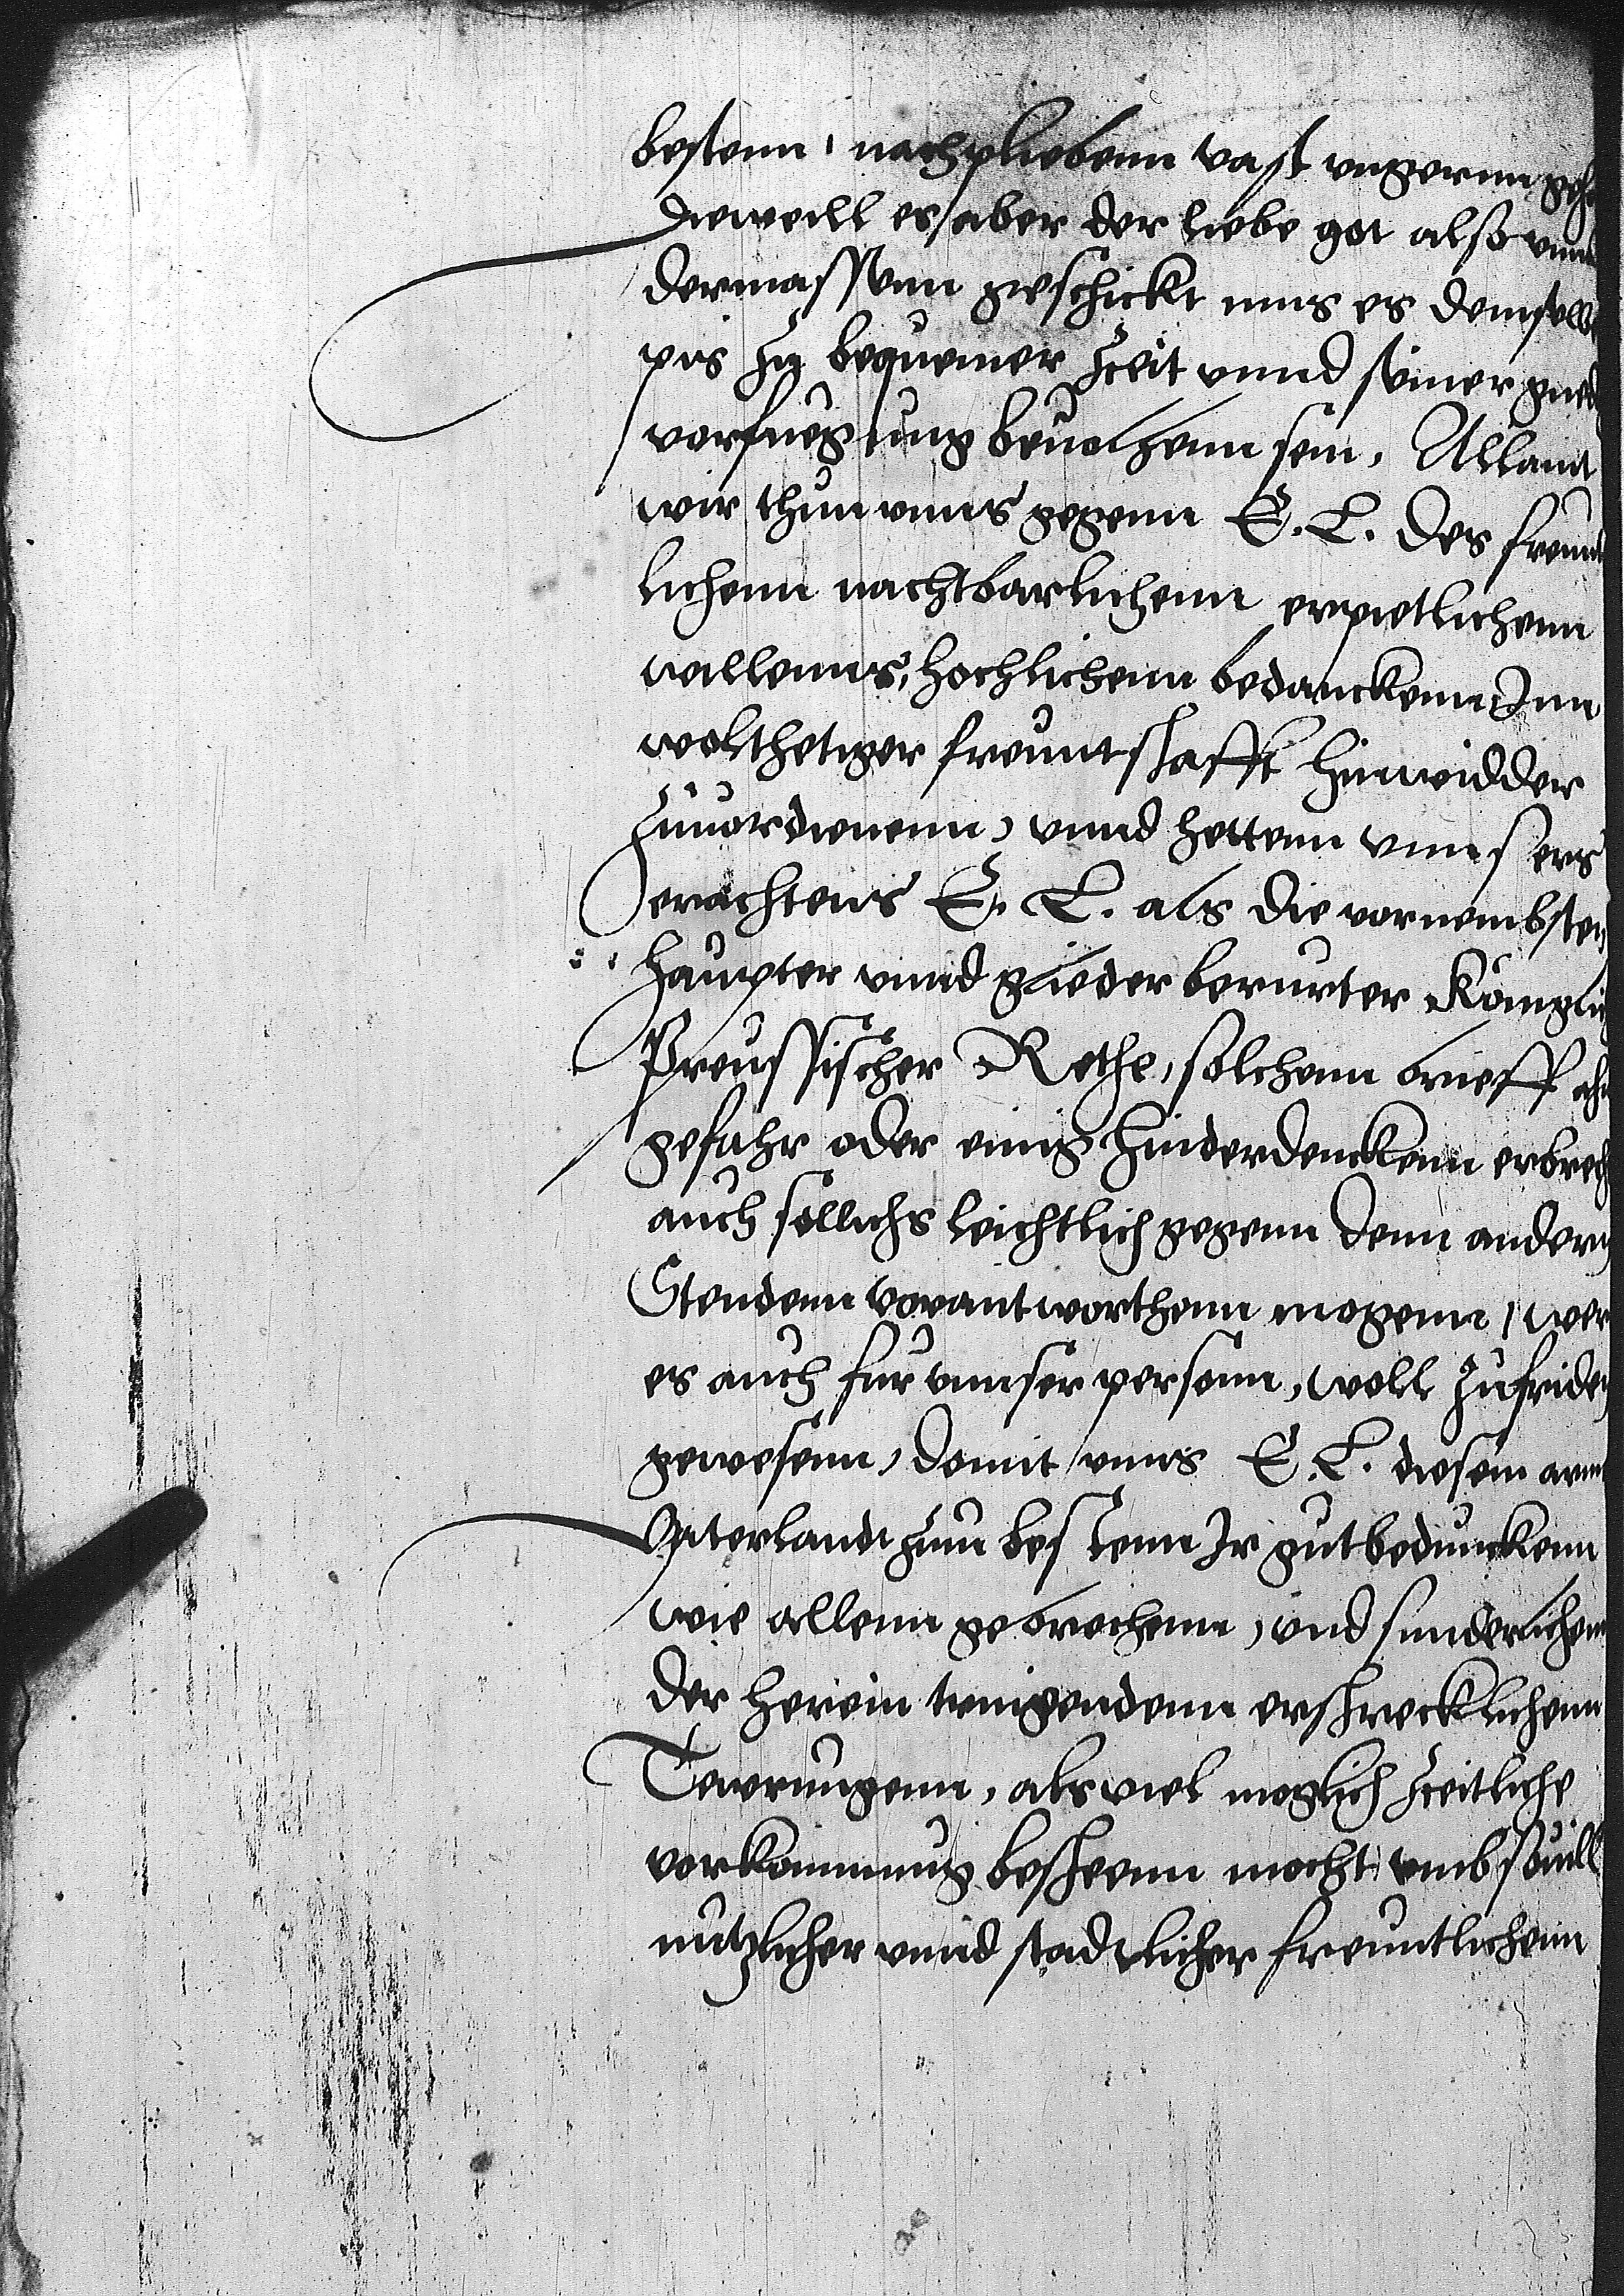 bestenn, nachpliebenn vast vngernn geh
Dieweill es aber der liebe got also vnnd
dermassenn geschickt mus es demselb
pis zu bequemer Zceit vnnd seiner gned
vorfuegung beuolhenn sein, Allain
wir thun vnns gegenn E. L. des freunt
lichenn nachtbarlichenn erpietlichenn
willenns, hochlichenn bedanckenn, Inn
wolthetiger freuntschafft hinwidder
Zuuordienenn, vnnd hettenn vnnsers
erachtens E. L. als die vornembsten
haupter vnnd glieder berurter Königlich
Preussischer Rethe, solchenn brieff ahn
gefahr oder einig hinderdenckenn erbrech
auch sollichs leichtlich gegenn denn andern
Stendenn vorantworthenn mogenn, wer
es auch fur vnnser personn, woll zufriden
gewesenn, domit vnns E. L. diesem arm
Vaterlandt zum bestenn Ir gutbedunckenn
wie allenn gebrechenn, vnd sunderlichenn
der herein dringendenn erschrecklichenn
Tewrungenn, als viel moglich zceitliche
vorkommung bescheenn mocht vmb souill
nutzlicher vnnd stadtlicher freuntlichenn